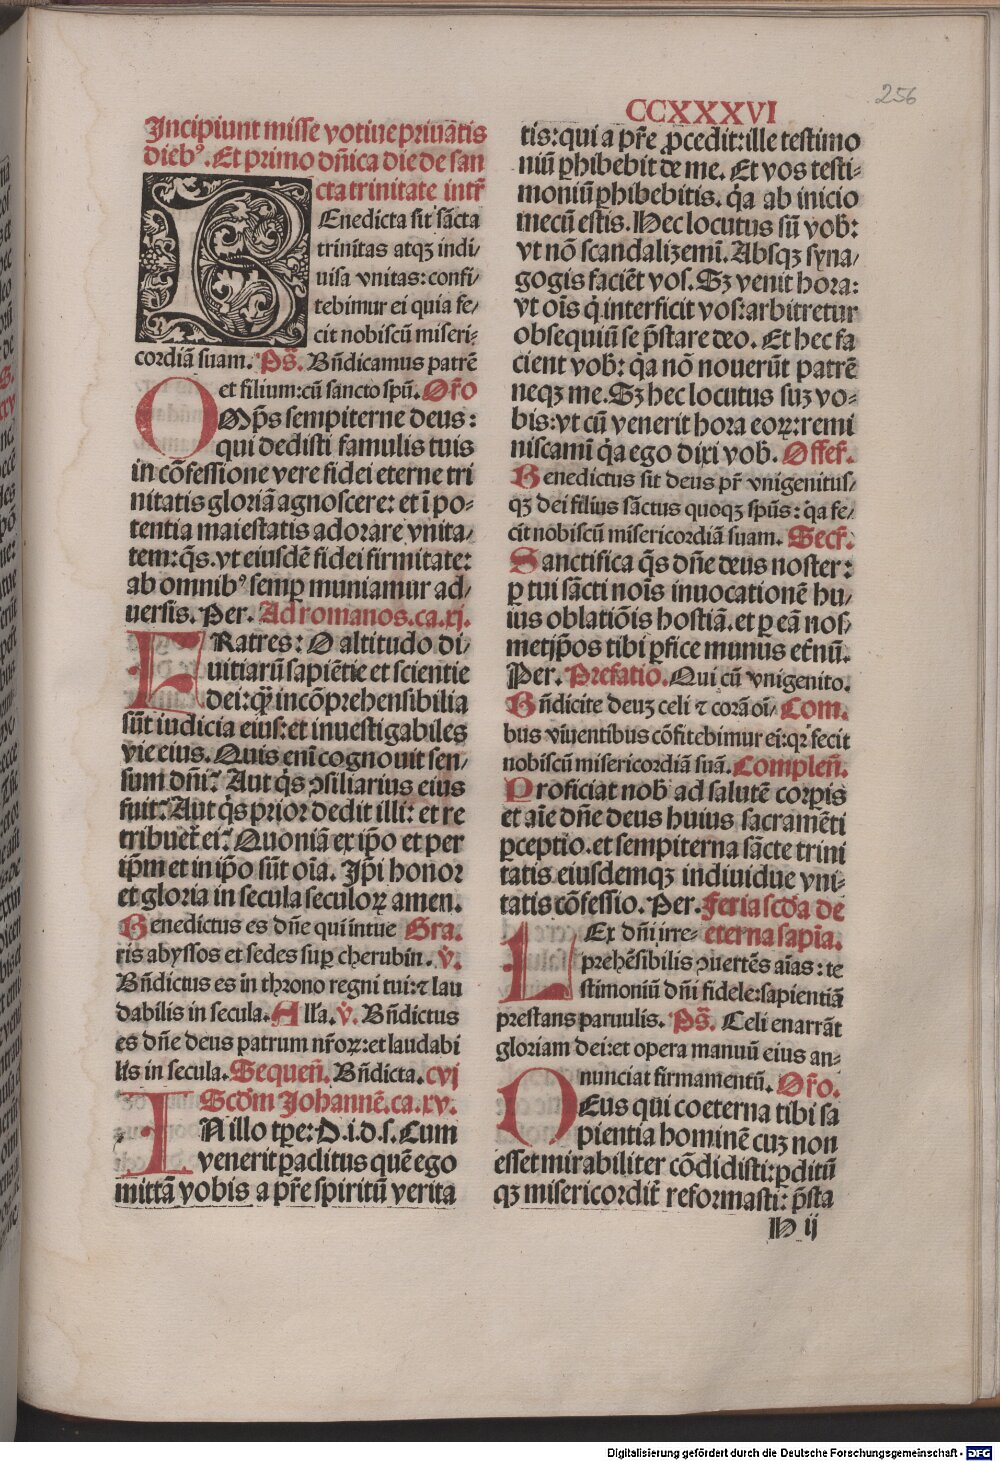 256
CCXXXVI
Incipiunt misse votiue priuātis
dieb⁹. Et primo dn̄ica die de san
cta trinitate intr̄
BEnedicta sit sācta
trinitas atqꝫ indi/
uisa vnitas: confi/
tebimur ei quia fe/
cit nobiscū miseri-
cordiā suam. Ps̄. Bn̄dicamus patrē
et filium: cū sancto spū. Or̄o
OMp̄s sempiterne deus:
qui dedisti famulis tuis
in cōfessione vere fidei eterne tri
nitatis gloriā agnoscere: et ī po-
tentia maiestatis adorare vnita/
tem: qs̄. vt eiusdē fidei firmitate:
ab omnib⁹ semꝑ muniamur ad/
uersis. Per. Ad romanos. ca. xj.
FRatres: O altitudo di/
uitiarū sapiētie et scientie
dei: qᷓꝫ incōprehensibilia
sūt iudicia eius: et inuestigabiles
vie eius. Quis eni̅ cognouit sen/
sum dn̄i? Aut qͥs ↄsiliarius eius
fuit? Aut qͥs prior dedit illi: et re
tribuet̄ ei? Quoniā ex ip̄o et per
ip̄m et in ip̄o sūt oīa. Ip̄i honor
et gloria in secula seculoꝝ amen.
Benedictus es dn̄e qui intue Gra.
ris abyssos et sedes suꝑ cherubin. ℣.
Bn̄dictus es in throno regni tui: ⁊ lau
dabilis in secula. Alla. ℣. Bn̄dictus
es dn̄e deus patrum nr̄oꝝ: et laudabi
lis in secula. Sequen̄. Bn̄dicta. cvj
Scd̄m Johannē. ca. xv.
IN illo tꝑe: D. i. d. s. Cum
venerit ꝑaclitus quē ego
mittā vobis a pr̄e spiritū verita
tis: qui a pr̄e ꝓcedit: ille testimo
niū ꝑhibebit de me. Et vos testi-
moniū ꝑhibebitis. qͥa ab inicio
mecū estis. Hec locutus sū vob:
vt nō scandalizemī. Absqꝫ syna/
gogis faciēt vos. Sꝫ venit hora:
vt oīs qͥ interficit vos: arbitretur
obsequiū se p̄stare deo. Et hec fa
cient vob: qͥa nō nouerūt patrē
neqꝫ me. Sꝫ hec locutus suꝫ vo-
bis: vt cū venerit hora eoꝝ: remi
niscami̅ qͥa ego dixi vob. Offer̄.
Benedictus sit deus pr̄ vnigenitus/
qꝫ dei filius sāctus quoqꝫ spūs: qͥa fe/
cit nobiscū misericordiā suam. Secr̄.
Sanctifica qs̄ dn̄e deus noster:
ꝑ tui sācti noīs inuocationē hu/
ius oblatiōis hostiā. et ꝑ eā nos
metip̄os tibi ꝑfice munus et̄nū.
Per. Prefatio. Qui cū vnigenito.
Bn̄dicite deuꝫ celi ⁊ corā oī/ Com.
bus viuentibus cōfitebimur ei: qꝛ fecit
nobiscū misericordiā suā. Complen̄.
Proficiat nob ad salutē corꝑis
et aīe dn̄e deus huius sacramēti
ꝑceptio. et sempiterna sācte trini
tatis eiusdemqꝫ indiuidue vni-
tatis cōfessio. Per. Feria scd̄a de
LEx dn̄i irre- eterna sapīa.
prehēsibilis ↄuertēs aīas: te
stimoniū dn̄i fidele: sapientiā
prestans paruulis. Ps̄. Celi enarrāt
gloriam dei: et opera manuū eius an-
nunciat firmamentū. Or̄o.
DEus qui coeterna tibi sa
pientia hominē cuꝫ non
esset mirabiliter cōdidisti: ꝑditū
qꝫ misericordit̄ reformasti: p̄sta
H ij
Digitalisierung gefördert durch die Deutsche Forschungsgemeinschaft - DFG